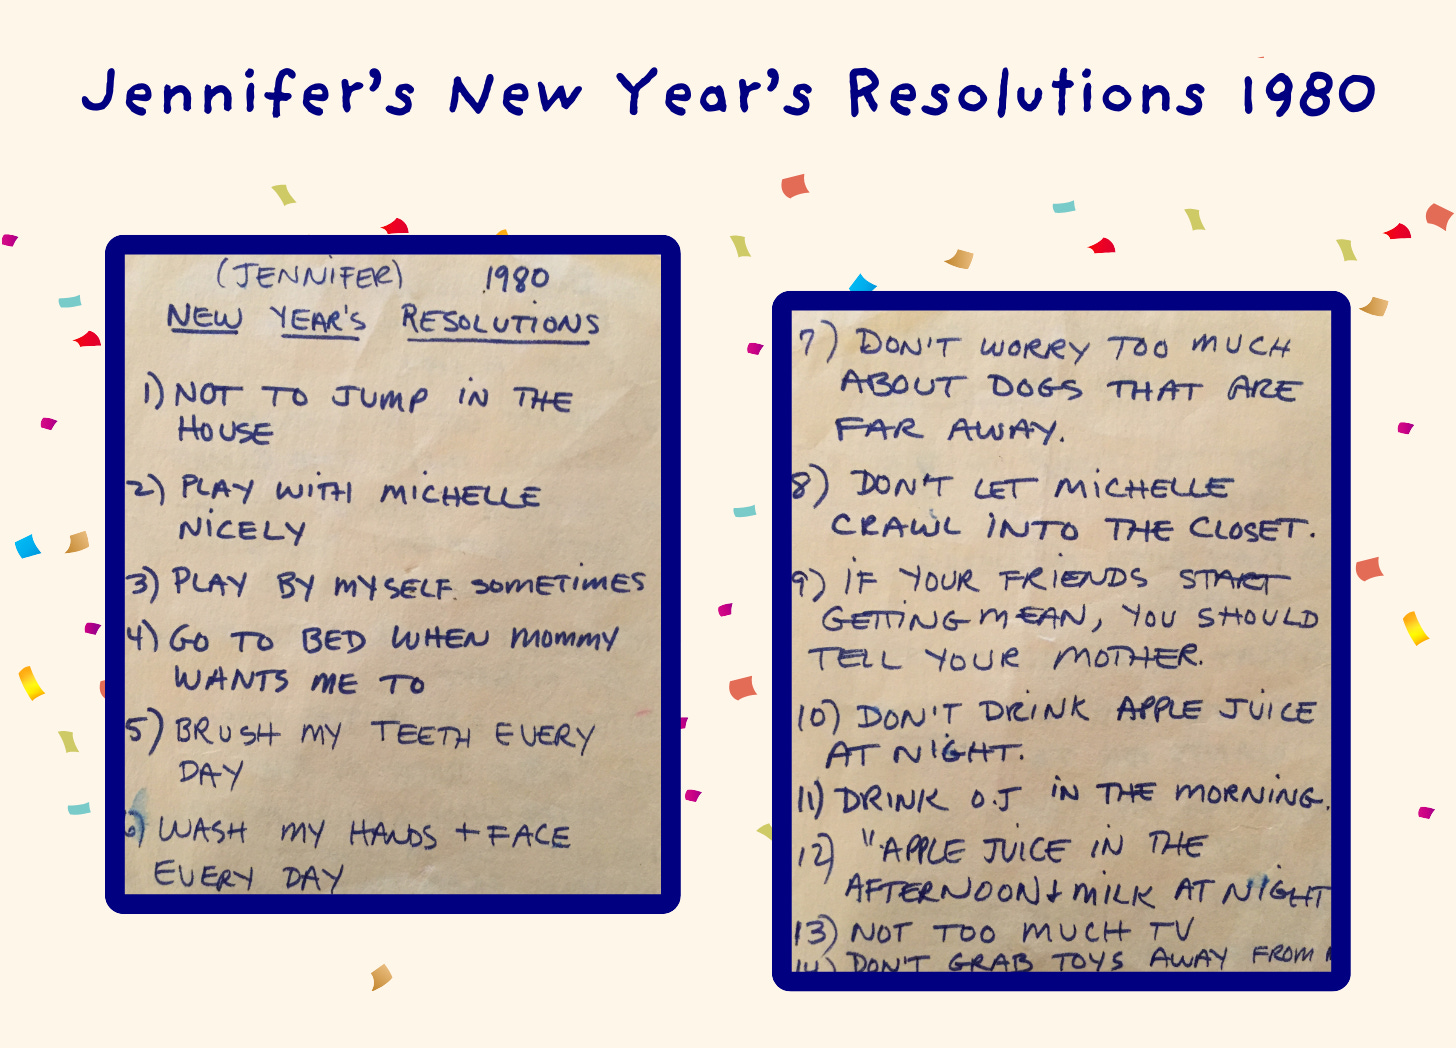 Jennifer's New Year's Resolutions 1980
(JENNIFER) 1980
NEW YEAR'S RESOLUTIONS
1) NOT TO JUMP IN THE
HOUSE
2) PLAY WITH MICHELLE
NICELY
3) PLAY BY MYSELF SOMETIMES
4) GO TO BED WHEN MOMMY
WANTS ME TO
5) BRUSH MY TEETH EVERY
DAY
6) WASH MY HANDS + FACE
EVERY DAY
7) DON'T WORRY TOO MUCH
ABOUT DOGS THAT ARE
FAR AWAY.
8) DON'T LET MICHELLE
CRAWL INTO THE CLOSET.
9) IF YOUR FRIENDS START
GETTING MEAN, YOU SHOULD
TELL YOUR MOTHER.
10) DON'T DRINK APPLE JUICE
AT NIGHT.
11) DRINK O.J IN THE MORNING.
12) "APPLE JUICE IN THE
AFTERNOON + MILK AT NIGHT
13) NOT TOO MUCH TV
14) DON'T GRAB TOYS AWAY FROM